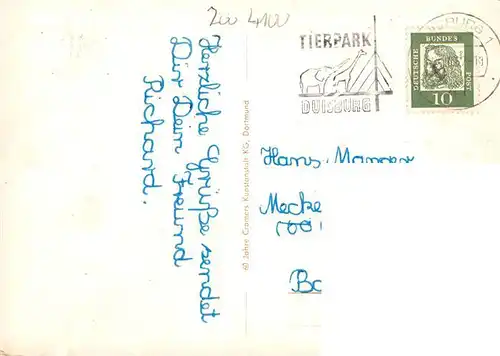 200 4100
TIERPARK
DUISBURG
DUISBURG 1
DEUTSCHE
BUNDES
POST
10
Herzliche Grüße sendet
Dir Dein Freund
Richard.
60 Jahre Cramers Kunstanstalt KG, Dortmund
Hans-